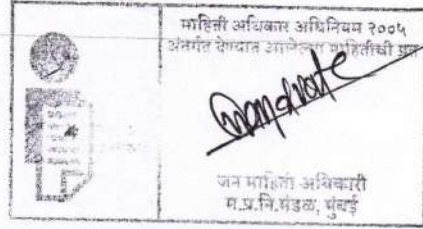 माहिती अधिकार अधिनियम २००५
अंतर्गत देण्यात आलेल्या माहितीची प्रत
जन माहिती अधिकारी
म.प्र.नि.मंडळ, मुंबई